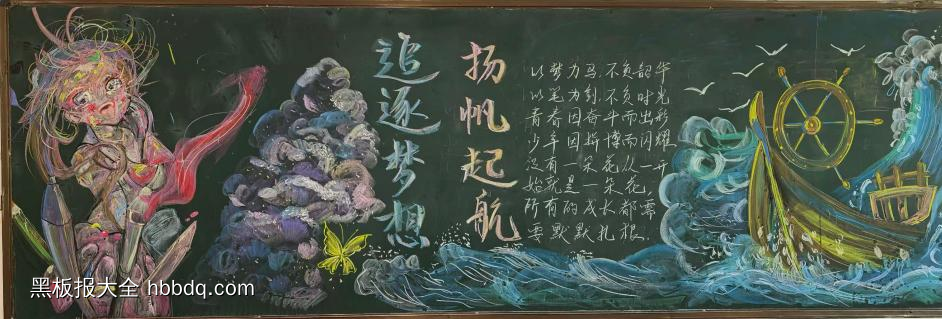 追逐梦想
扬帆起航
以梦为马,不负韶华
以笔为剑,不负时光
青春因奋斗而出彩
少年因拼博而闪耀
没有一朵花,从一开
始就是一朵花,
所有的成长都需
要默默扎根.
黑板报大全 hbbdq.com